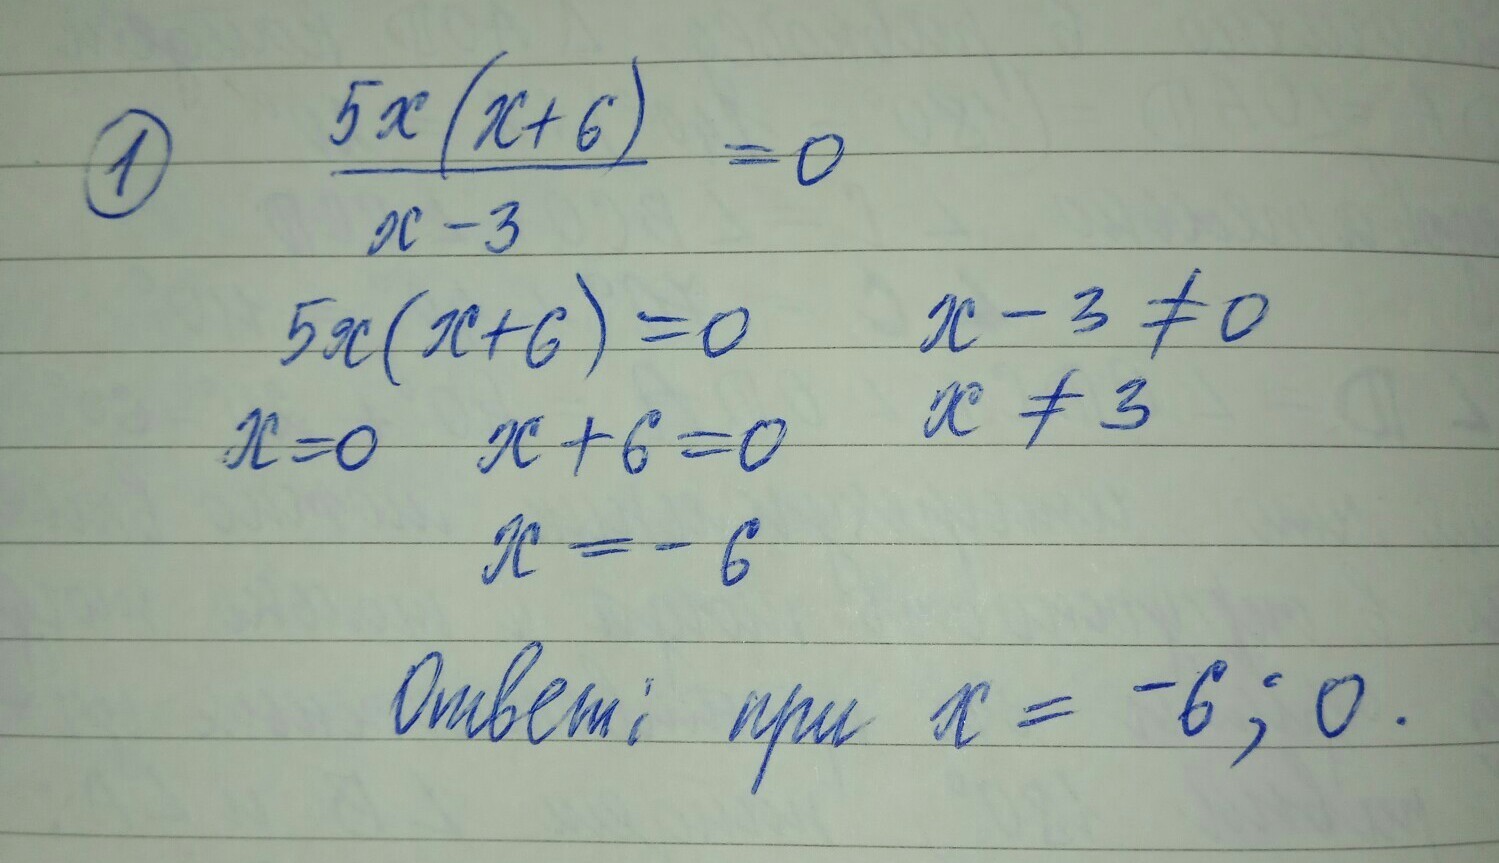 ① 5x(x+6)/x-3 =0
5x(x+6)=0 x-3≠0
x=0 x+6=0 x≠3
x=-6
Ответ: при x=-6; 0.